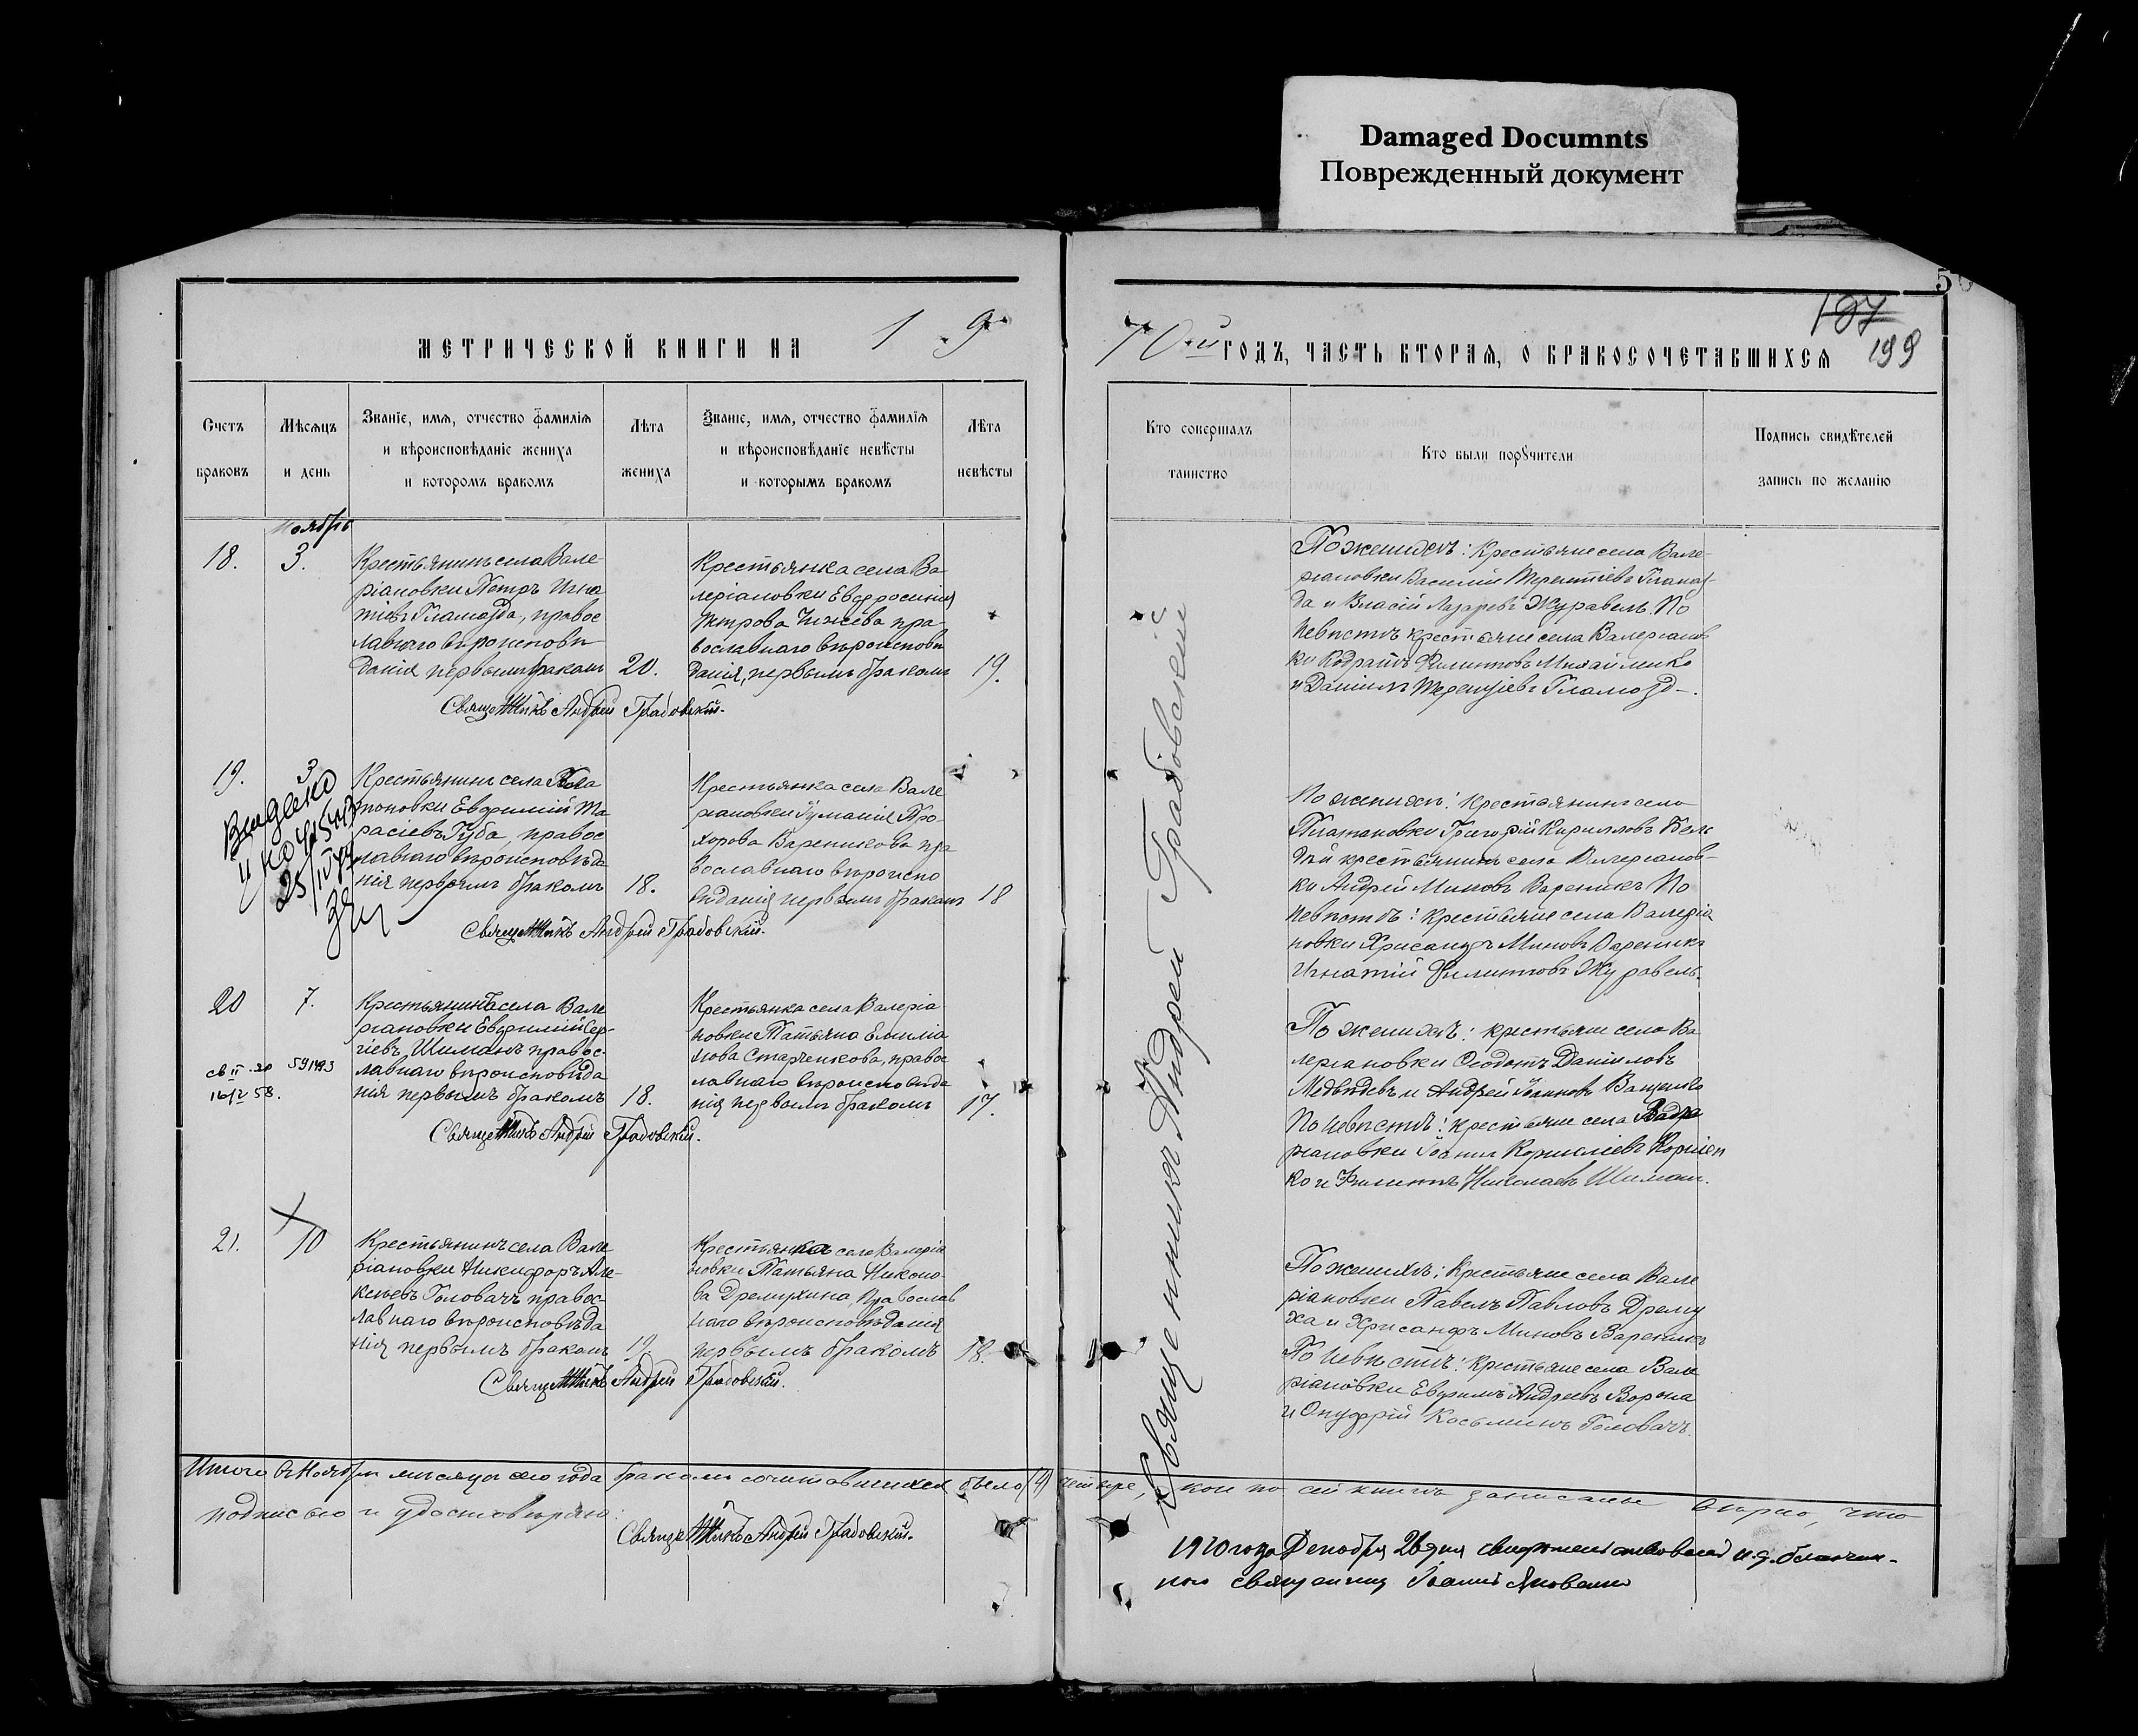 Damaged Documnts
Поврежденный документ
МЕТРИЧЕСКОЙ КНИГИ НА 1 9
10ый ГОДЪ, ЧАСТЬ ВТОРАЯ, О БРАКОСОЧЕТАВШИХСЯ
5
187
199
Счетъ браковъ
Мѣсяцъ и день
Званіе, имя, отчество фамилія
и вѣроисповѣданіе жениха
и которомъ бракомъ
Лѣта жениха
Званіе, имя, отчество фамилія
и вѣроисповѣданіе невѣсты
и которымъ бракомъ
Лѣта невѣсты
Кто совершалъ таинство
Кто были поручители
Подпись свидѣтелей
запись по желанію
Ноябрь
18.
3.
Крестьянинъ села Вале
ріановки Петръ Игна
тіевъ Гламазда, правос
лавнаго вѣроисповѣ
данія первымъ бракомъ
20.
Крестьянка села Ва
леріановки Евфросинія
Петрова Чижева пра-
вославнаго вѣроисповѣ
данія, первымъ бракомъ
19.
Священникъ Андрей Грабовскій.
По женихѣ: Крестьяне села Вале-
ріановки Василій Терентіевъ Гламаз-
да и Власій Лазаревъ Журавель. По
невѣстѣ крестьяне села Валеріанов
ки Кодратъ Филипповъ Михайленко
и Даніилъ Терентіевъ Гламозд-.
19.
3
Выдано
25/IV
Крестьянинъ села
поновки Евфимій Та
расіевъ Губа, правос
лавнаго вѣроисповѣда
нія первымъ бракомъ
18.
Крестьянка села Вале
ріановки Гуманія Про-
хорова Вареникова пра
вославнаго вѣроиспо
вѣданія первымъ бракомъ
18
Священникъ Андрей Грабовскій.
По женихѣ: Крестьянинъ села
Платановки Григорій Кирилловъ
крестьянинъ села Валеріанов-
ки Андрей Миновъ Вареникъ По
невѣстѣ: Крестьяне села Валеріа
новки Хрисанфъ Миновъ Вареникъ
Игнатій Филипповъ Журавель.
20
7.
59193
16/V 58.
Крестьянинъ села Вале
ріановки Евфимій Сер-
гіевъ Шиманъ правос-
лавнаго вѣроисповѣда
нія первымъ бракомъ
18.
Крестьянка села Валеріа
новки Татьяна Емиліа
нова Старченкова, правос
лавнаго вѣроисповѣда
нія первымъ бракомъ
17.
Священникъ Андрей Грабовскій.
По женихѣ: крестьяне села Ва
леріановки Ѳеодотъ Даніиловъ
Медвѣдевъ и Андрей Іоанновъ Ващенко
По невѣстѣ: крестьяне села Вале
ріановки Іоаннъ Корниліевъ Корніен
ко и Филиппъ Николаевъ Шиманъ.
21.
10
Крестьянинъ села Вале
ріановки Никифоръ Але-
ксѣевъ Головачъ правос-
лавнаго вѣроисповѣда
нія первымъ бракомъ
19.
Крестьянка села Валеріа
новки Татьяна Никоно-
ва Дремухина, Православ
наго вѣроисповѣданія
первымъ бракомъ
18.
Священникъ Андрей Грабовскій.
По женихѣ: Крестьяне села Вале
ріановки Павелъ Павловъ Дрему
ха и Хрисанфъ Миновъ Вареникъ
По невѣстѣ: Крестьяне села Вале
ріановки Евфимъ Андреевъ Ворона
и Онуфрій Косьминъ Головачъ.
Священникъ Андрей Грабовскій
Итого въ Ноябрѣ мѣсяцѣ сего года бракомъ сочетавшихся было (4) четыре, кои по сей книгѣ записаны вѣрно, что
подписью и удостовѣряю:
Священникъ Андрей Грабовскій.
1910 года Декабря 26 дня свидѣтельствовалъ и. д. благочин-
наго священникъ Іоаннъ